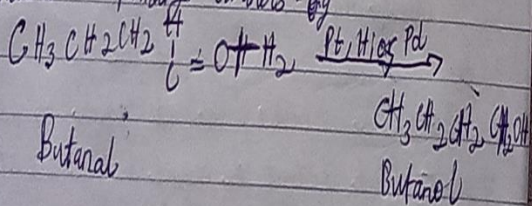 H
CH3CH2CH2 C=O+H2 Pt, Ni or Pd
CH3CH2CH2CH2OH
Butanal Butanol